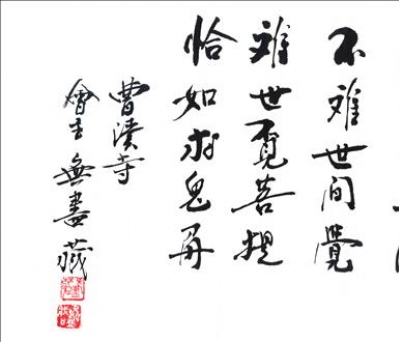 不離世間覺
離世覓菩提
恰如求兔角
曹溪寺
無盡藏